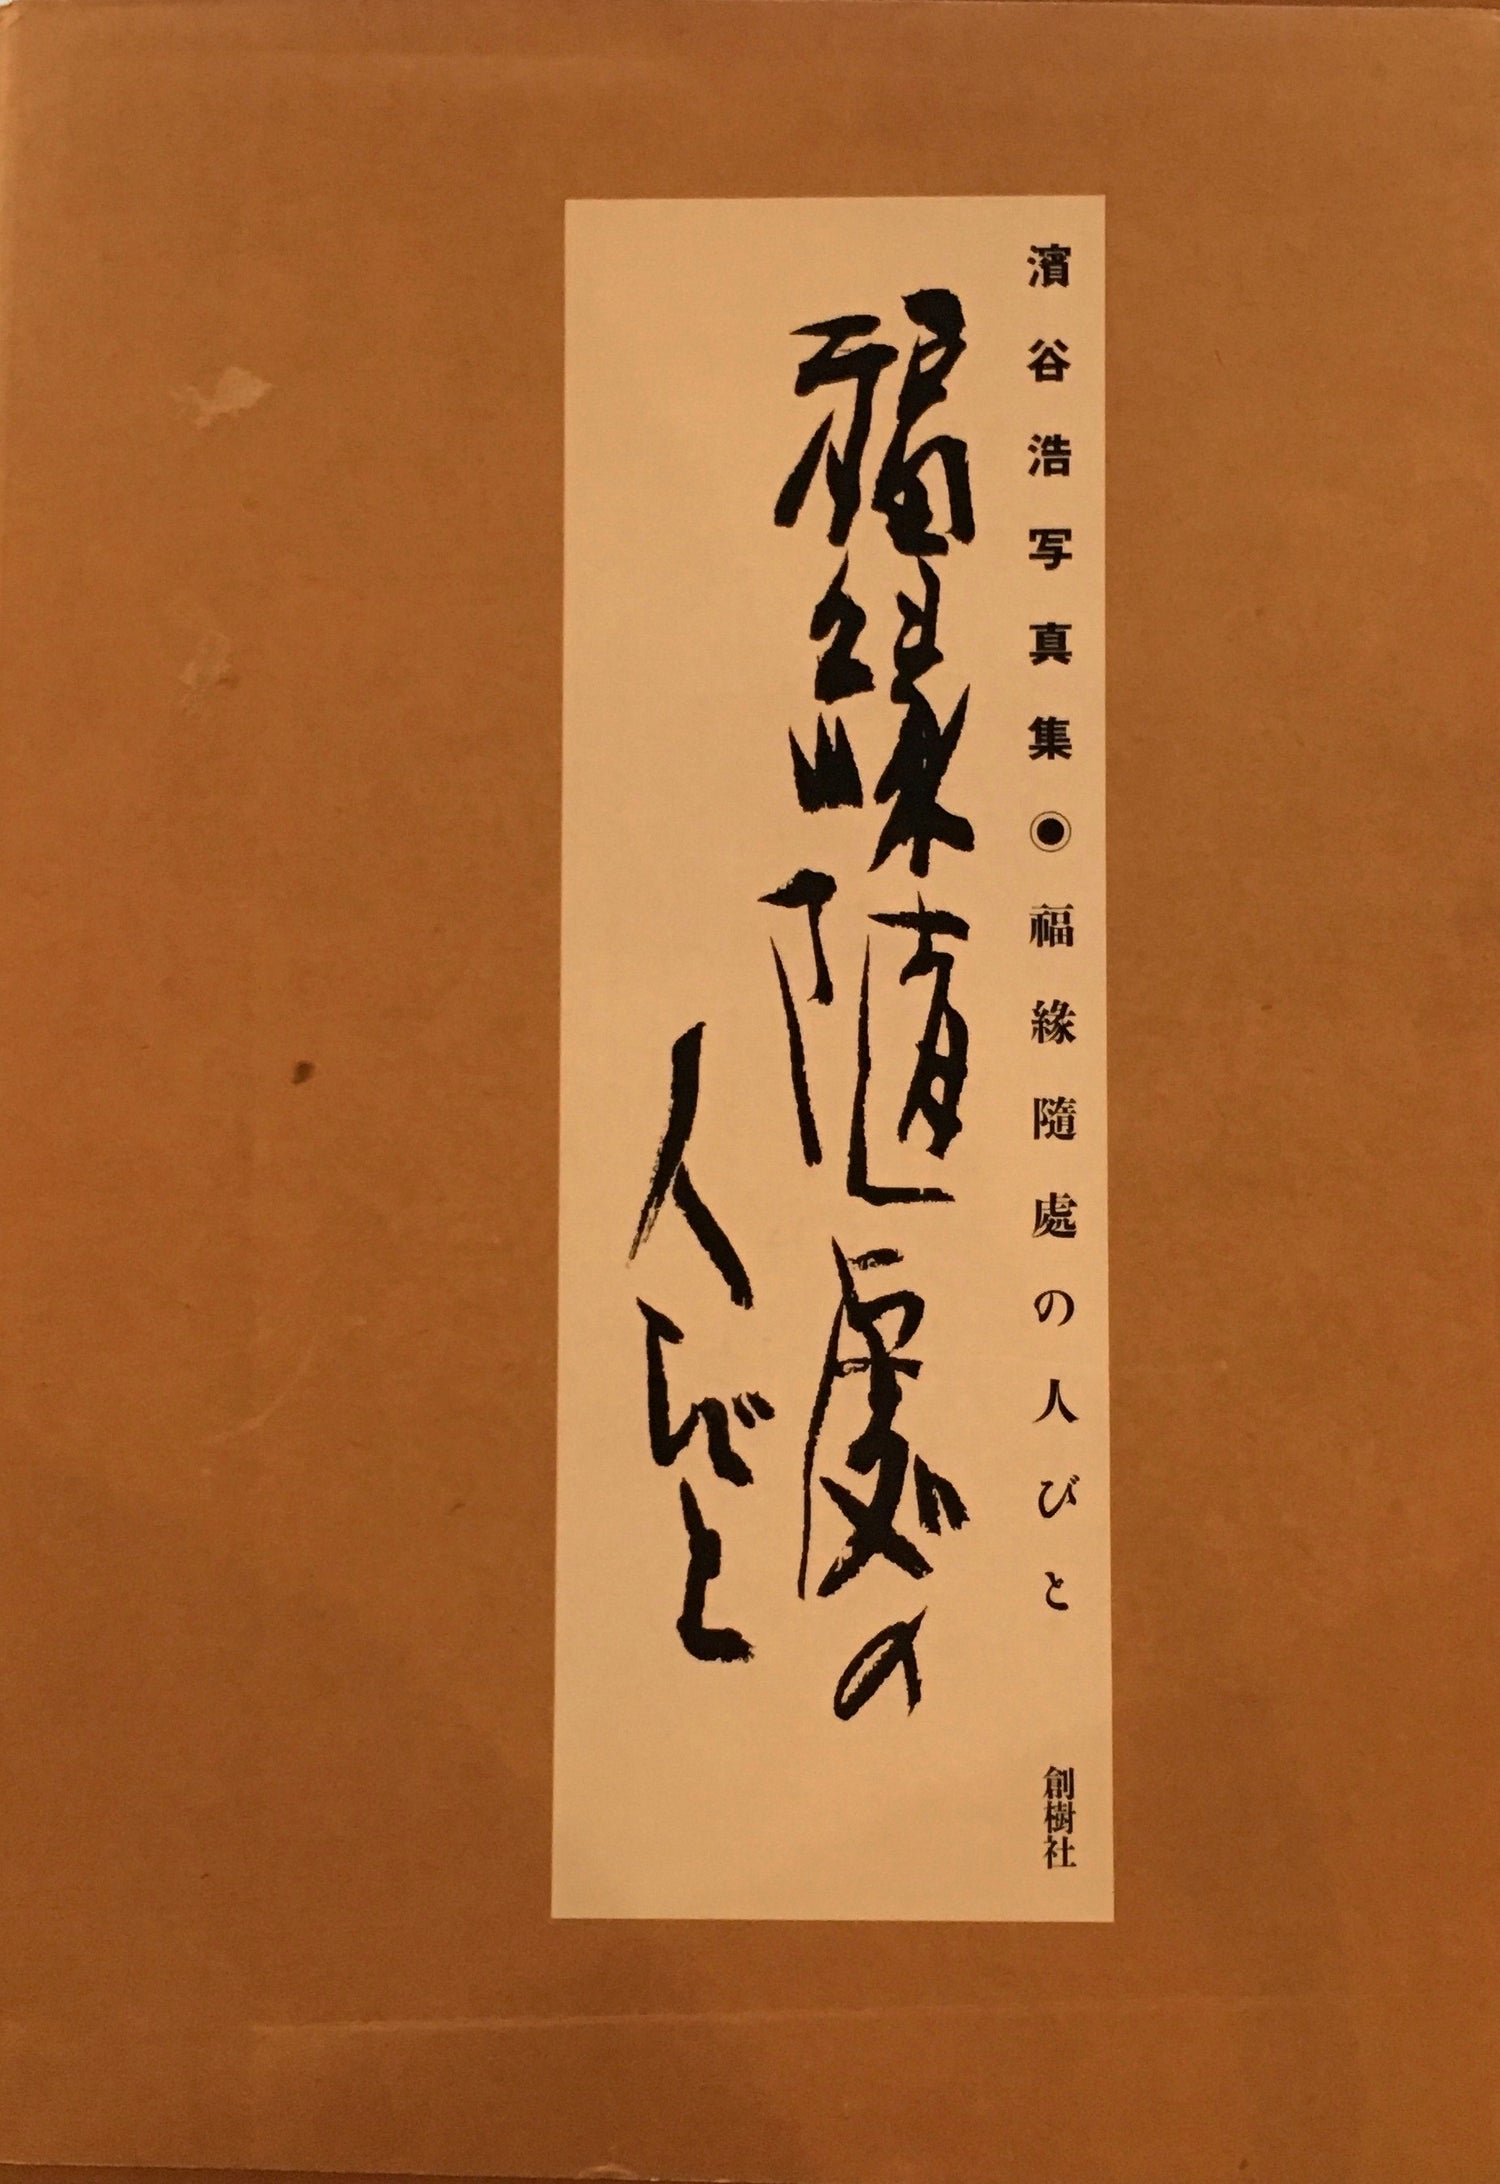 濱谷浩写真集◉福緣隨處の人びと
創樹社
福緣随處の
人びと